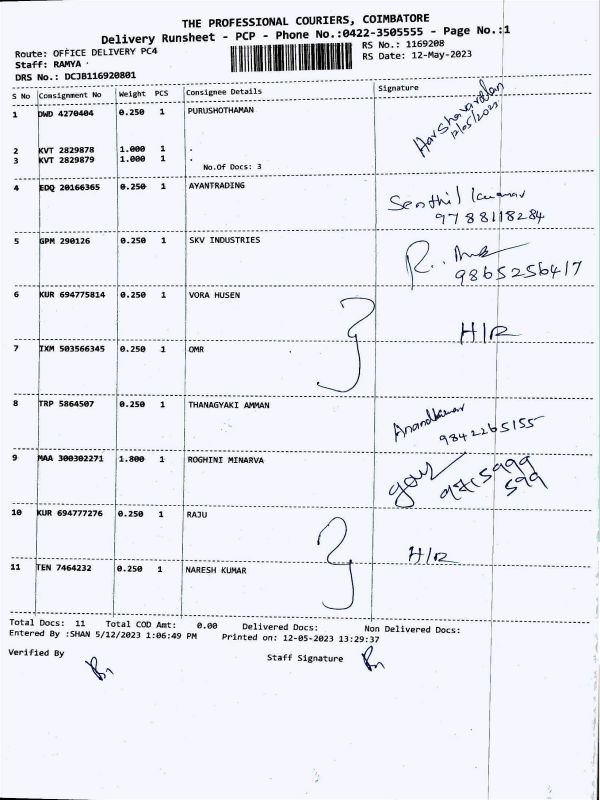 THE PROFESSIONAL COURIERS, COIMBATORE
Delivery Runsheet - PCP - Phone No.:0422-3505555 - Page No.:1
Route: OFFICE DELIVERY PC4
RS No.: 1169208
Staff: RAMYA
RS Date: 12-May-2023
DRS No.: DCJB116920801
S No Consignment No Weight PCS Consignee Details Signature
1 DWD 4270404 0.250 1 PURUSHOTHAMAN
Harshavardan
12/05/2023
2 KVT 2829878 1.000 1 .
3 KVT 2829879 1.000 1 .
No.Of Docs: 3
4 EDQ 20166365 0.250 1 AYANTRADING
Senthil kumar
9788118284
5 GPM 290126 0.250 1 SKV INDUSTRIES
9865256417
6 KUR 694775814 0.250 1 VORA HUSEN
H/R
7 IXM 503566345 0.250 1 OMR
8 TRP 5864507 0.250 1 THANAGYAKI AMMAN
Anandkumar
9842265155
9 MAA 300302271 1.800 1 ROGHINI MINARVA
10 KUR 694777276 0.250 1 RAJU
H/R
11 TEN 7464232 0.250 1 NARESH KUMAR
Total Docs: 11 Total COD Amt: 0.00 Delivered Docs: Non Delivered Docs:
Entered By :SHAN 5/12/2023 1:06:49 PM Printed on: 12-05-2023 13:29:37
Verified By Staff Signature